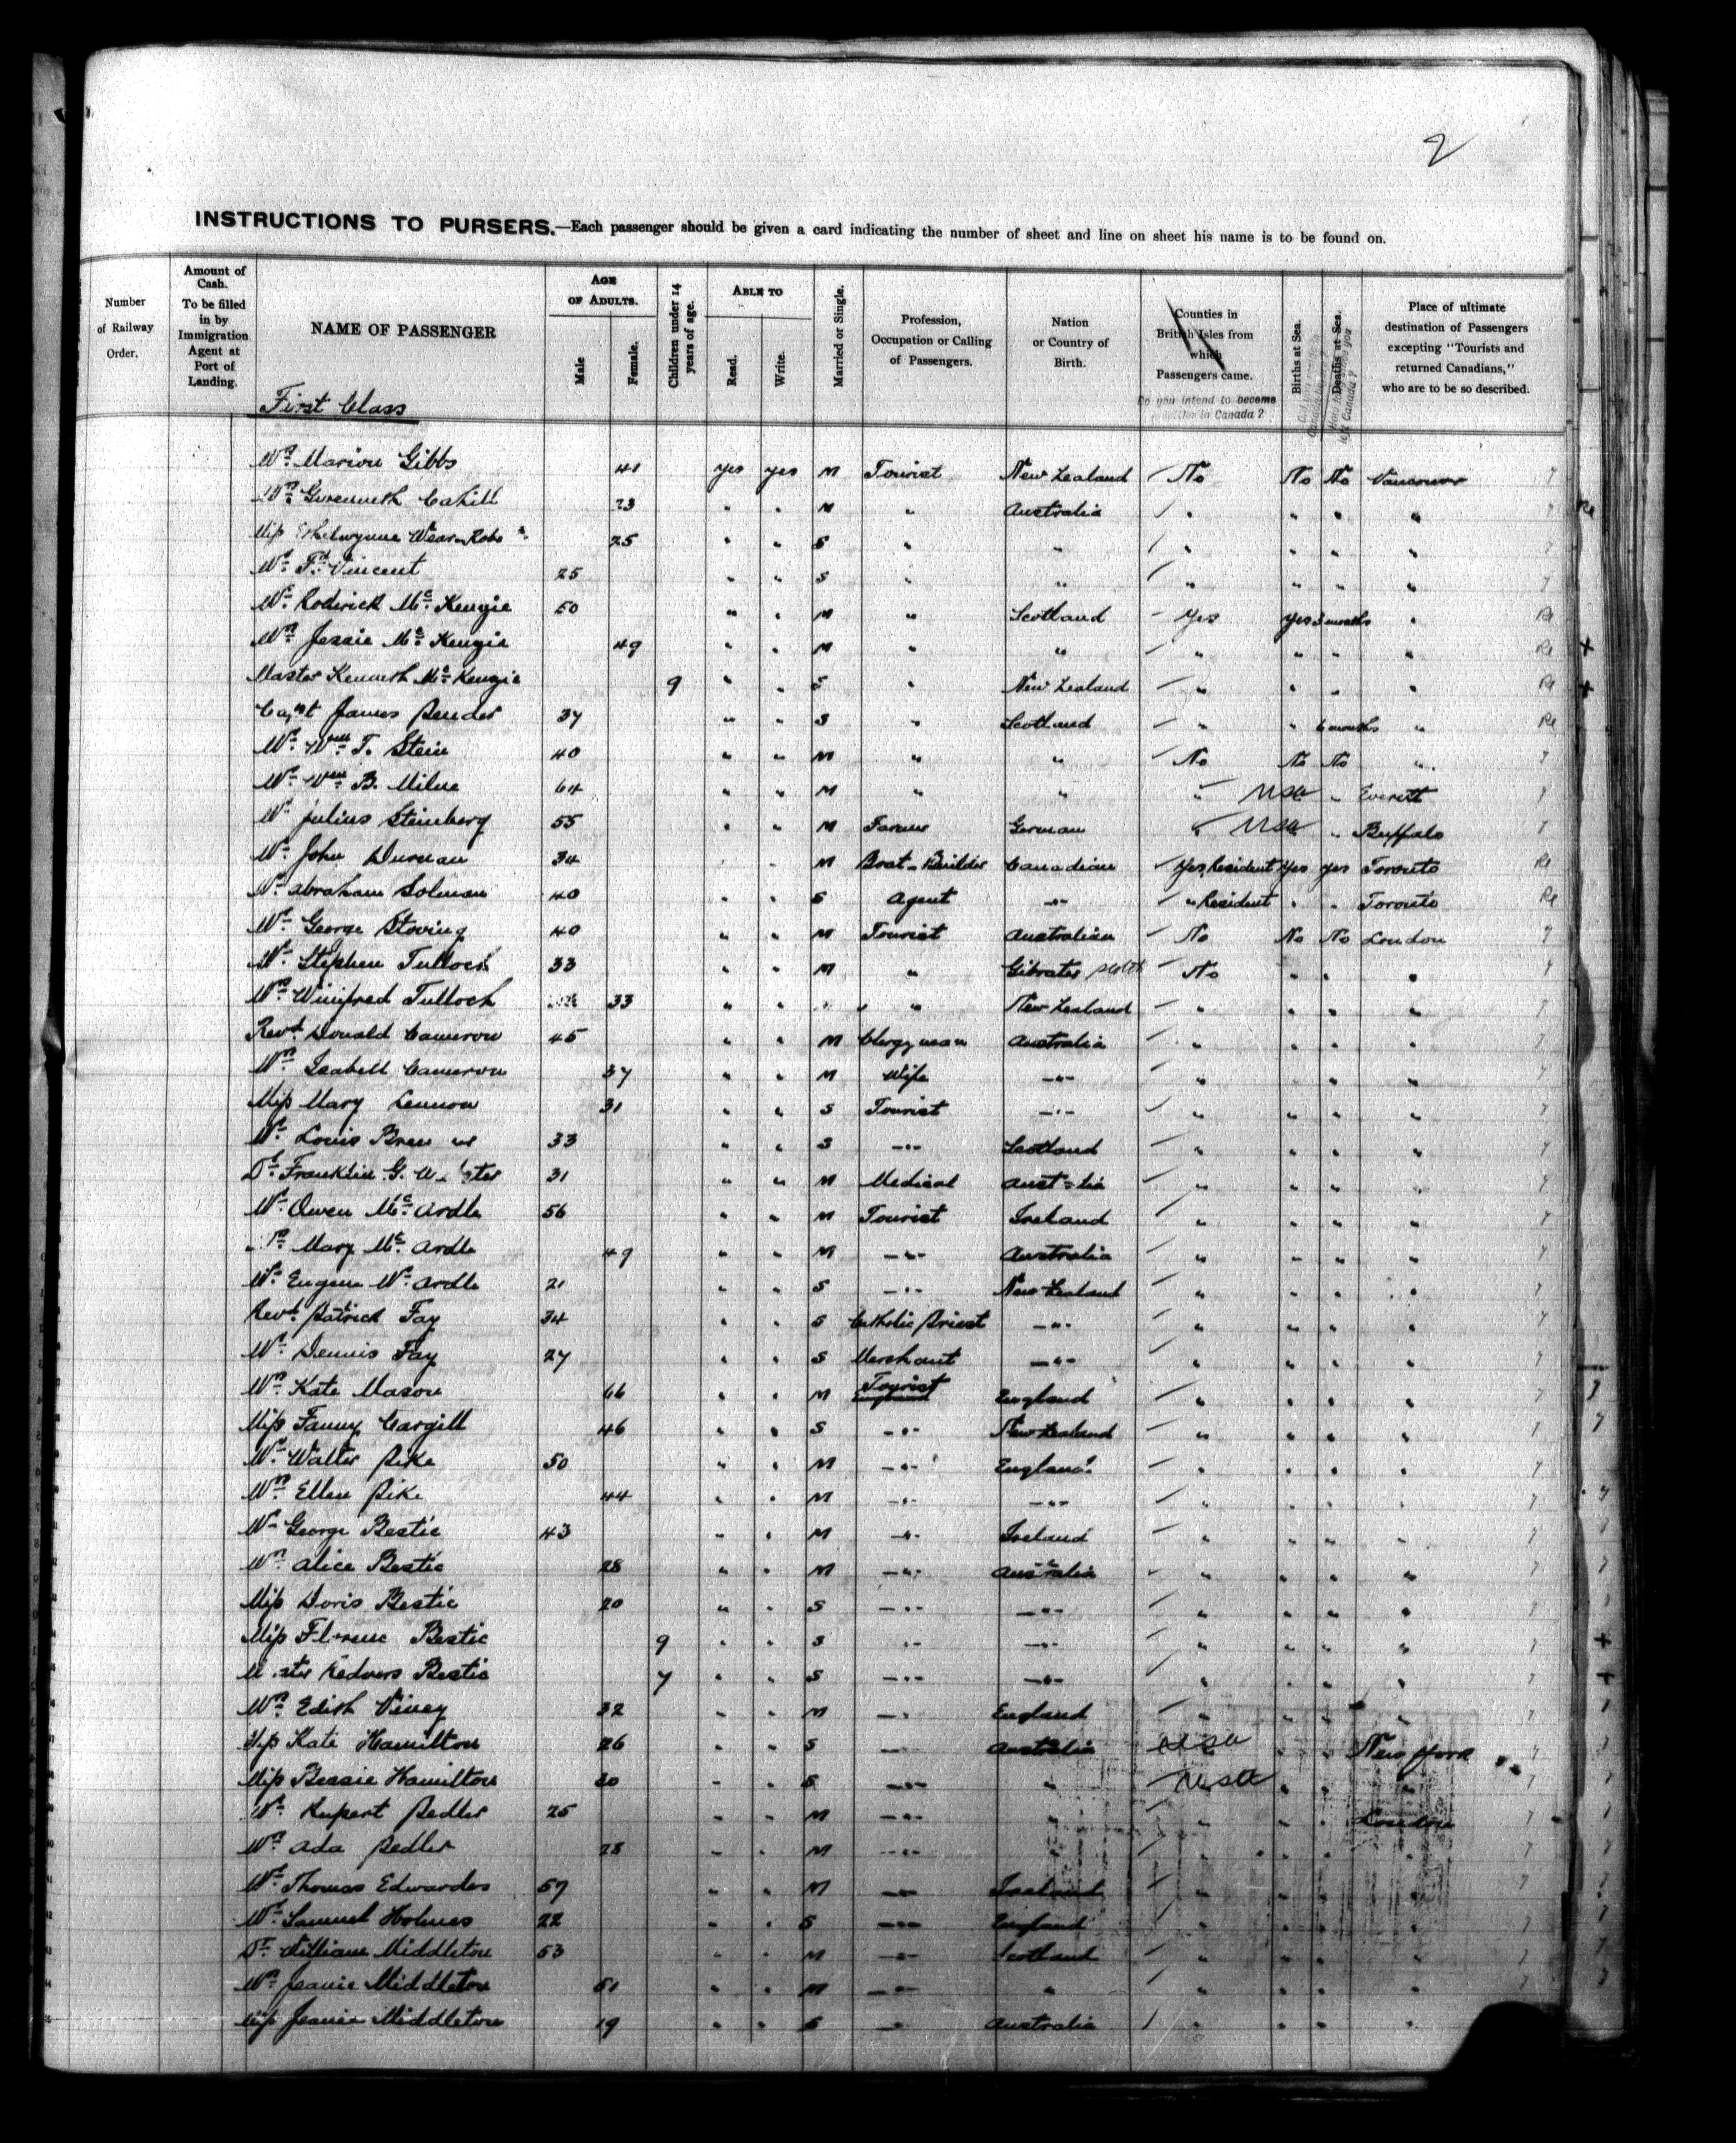 2
INSTRUCTIONS TO PURSERS.—Each passenger should be given a card indicating the number of sheet and line on sheet his name is to be found on.
Number of Railway Order.
Amount of Cash. To be filled in by Immigration Agent at Port of Landing.
NAME OF PASSENGER
AGE OF ADULTS.
Male
Female.
Children under 14 years of age.
ABLE TO
Read.
Write.
Married or Single.
Profession, Occupation or Calling of Passengers.
Nation or Country of Birth.
Counties in British Isles from which Passengers came.
Do you intend to become settler in Canada?
Births at Sea.
Deaths at Sea.
Place of ultimate destination of Passengers excepting "Tourists and returned Canadians," who are to be so described.
First Class
Mrs. Marion Gibbs 41 yes yes M Tourist New Zealand No No No Vancouver
Mrs. Gwenneth Cahill 23 " " M " Australia " " " "
Miss Ethelwynne 25 " " S " " " " " "
Mr. Fd. Vincent 25 " " S " " " " " "
Mr. Roderick McKenzie 50 " " M " Scotland Yes yes 3 months " Re
Mrs. Jessie McKenzie 49 " " M " " " " " " Re
Master Kenneth McKenzie 9 " " S " New Zealand " " " " Re
Capt James 37 " " S " Scotland " " 6 months " Re
Mr. Wm. T. Stein 40 " " M " " No No No "
Mr. Wm. B. Milne 64 " " M " " " USA " Everett
Mr. Julius Steinberg 55 " " M Farmer German " USA " Buffalo
Mr. John Durnan 34 M Boat-Builder Canadian Yes, Resident Yes yes Toronto Re
Mr. Abraham Solman 40 " " S Agent -"- " Resident " " Toronto Re
Mr. George Stoving 40 " " M Tourist Australian No No No London
Mr. Stephen Tulloch 33 " " M " Scotch No " " "
Mrs. Winifred Tulloch 33 " " " New Zealand " " " "
Revd. Donald Cameron 45 " " M Clergyman Australia " " " "
Mrs. Isabell Cameron 37 " " M Wife -"- " " " "
Miss Mary Lennon 31 " " S Tourist -"- " " " "
Mr. Louis 33 " " S -"- Scotland " " " "
Dr. Franklin G. 31 " " M Medical Australia " " " "
Mr. Owen McArdle 56 " " M Tourist Ireland " " " "
Mrs. Mary McArdle 49 " " M -"- Australia " " " "
Mr. Eugene McArdle 21 " " S -"- New Zealand " " " "
Revd. Patrick Fay 34 " " S Catholic Priest -"- " " " "
Mr. Dennis Fay 27 " " S Merchant -"- " " " "
Mrs. Kate Mason 66 " " M Tourist England " " " "
Miss Fanny Cargill 46 " " S -"- New Zealand " " " "
Mr. Walter Pike 50 " " M -"- England " " " "
Mrs. Ellen Pike 44 " " M -"- -"- " " " "
Mr. George Bestic 43 " " M -"- Ireland " " " "
Mrs. Alice Bestic 28 " " M -"- Australia " " " "
Miss Doris Bestic 20 " " S -"- -"- " " " "
Miss Florence Bestic 9 " " S -"- -"- " " " "
Master Redvers Bestic 7 " " S -"- -"- " " " "
Mrs. Edith Viney 32 " " M -"- England " " " "
Miss Kate Hamilton 26 " " S -"- Australia USA " " New York
Miss Bessie Hamilton 20 " " S -"- " USA " " "
Mr. Rupert Pedler 25 " " M -"- " " " " London
Mrs. Ada Pedler 28 " " M -"- " " " " "
Mr. Thomas Edwardes 57 " " M -"- Ireland " " " "
Mr. Samuel Holmes 22 " " S -"- England " " " "
Dr. William Middleton 53 " " M -"- Scotland " " " "
Mrs. Jeanie Middleton 51 " " M -"- " " " " "
Miss Jeanie Middleton 19 " " S -"- Australia " " " "